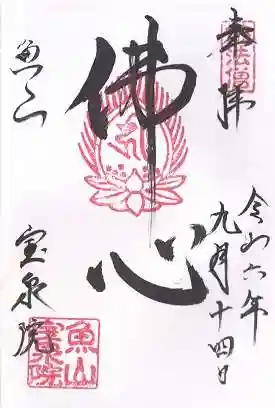 奉拝
佛法僧
令和六年
九月十四日
佛心
魚山
宝泉院
魚山
宝泉院